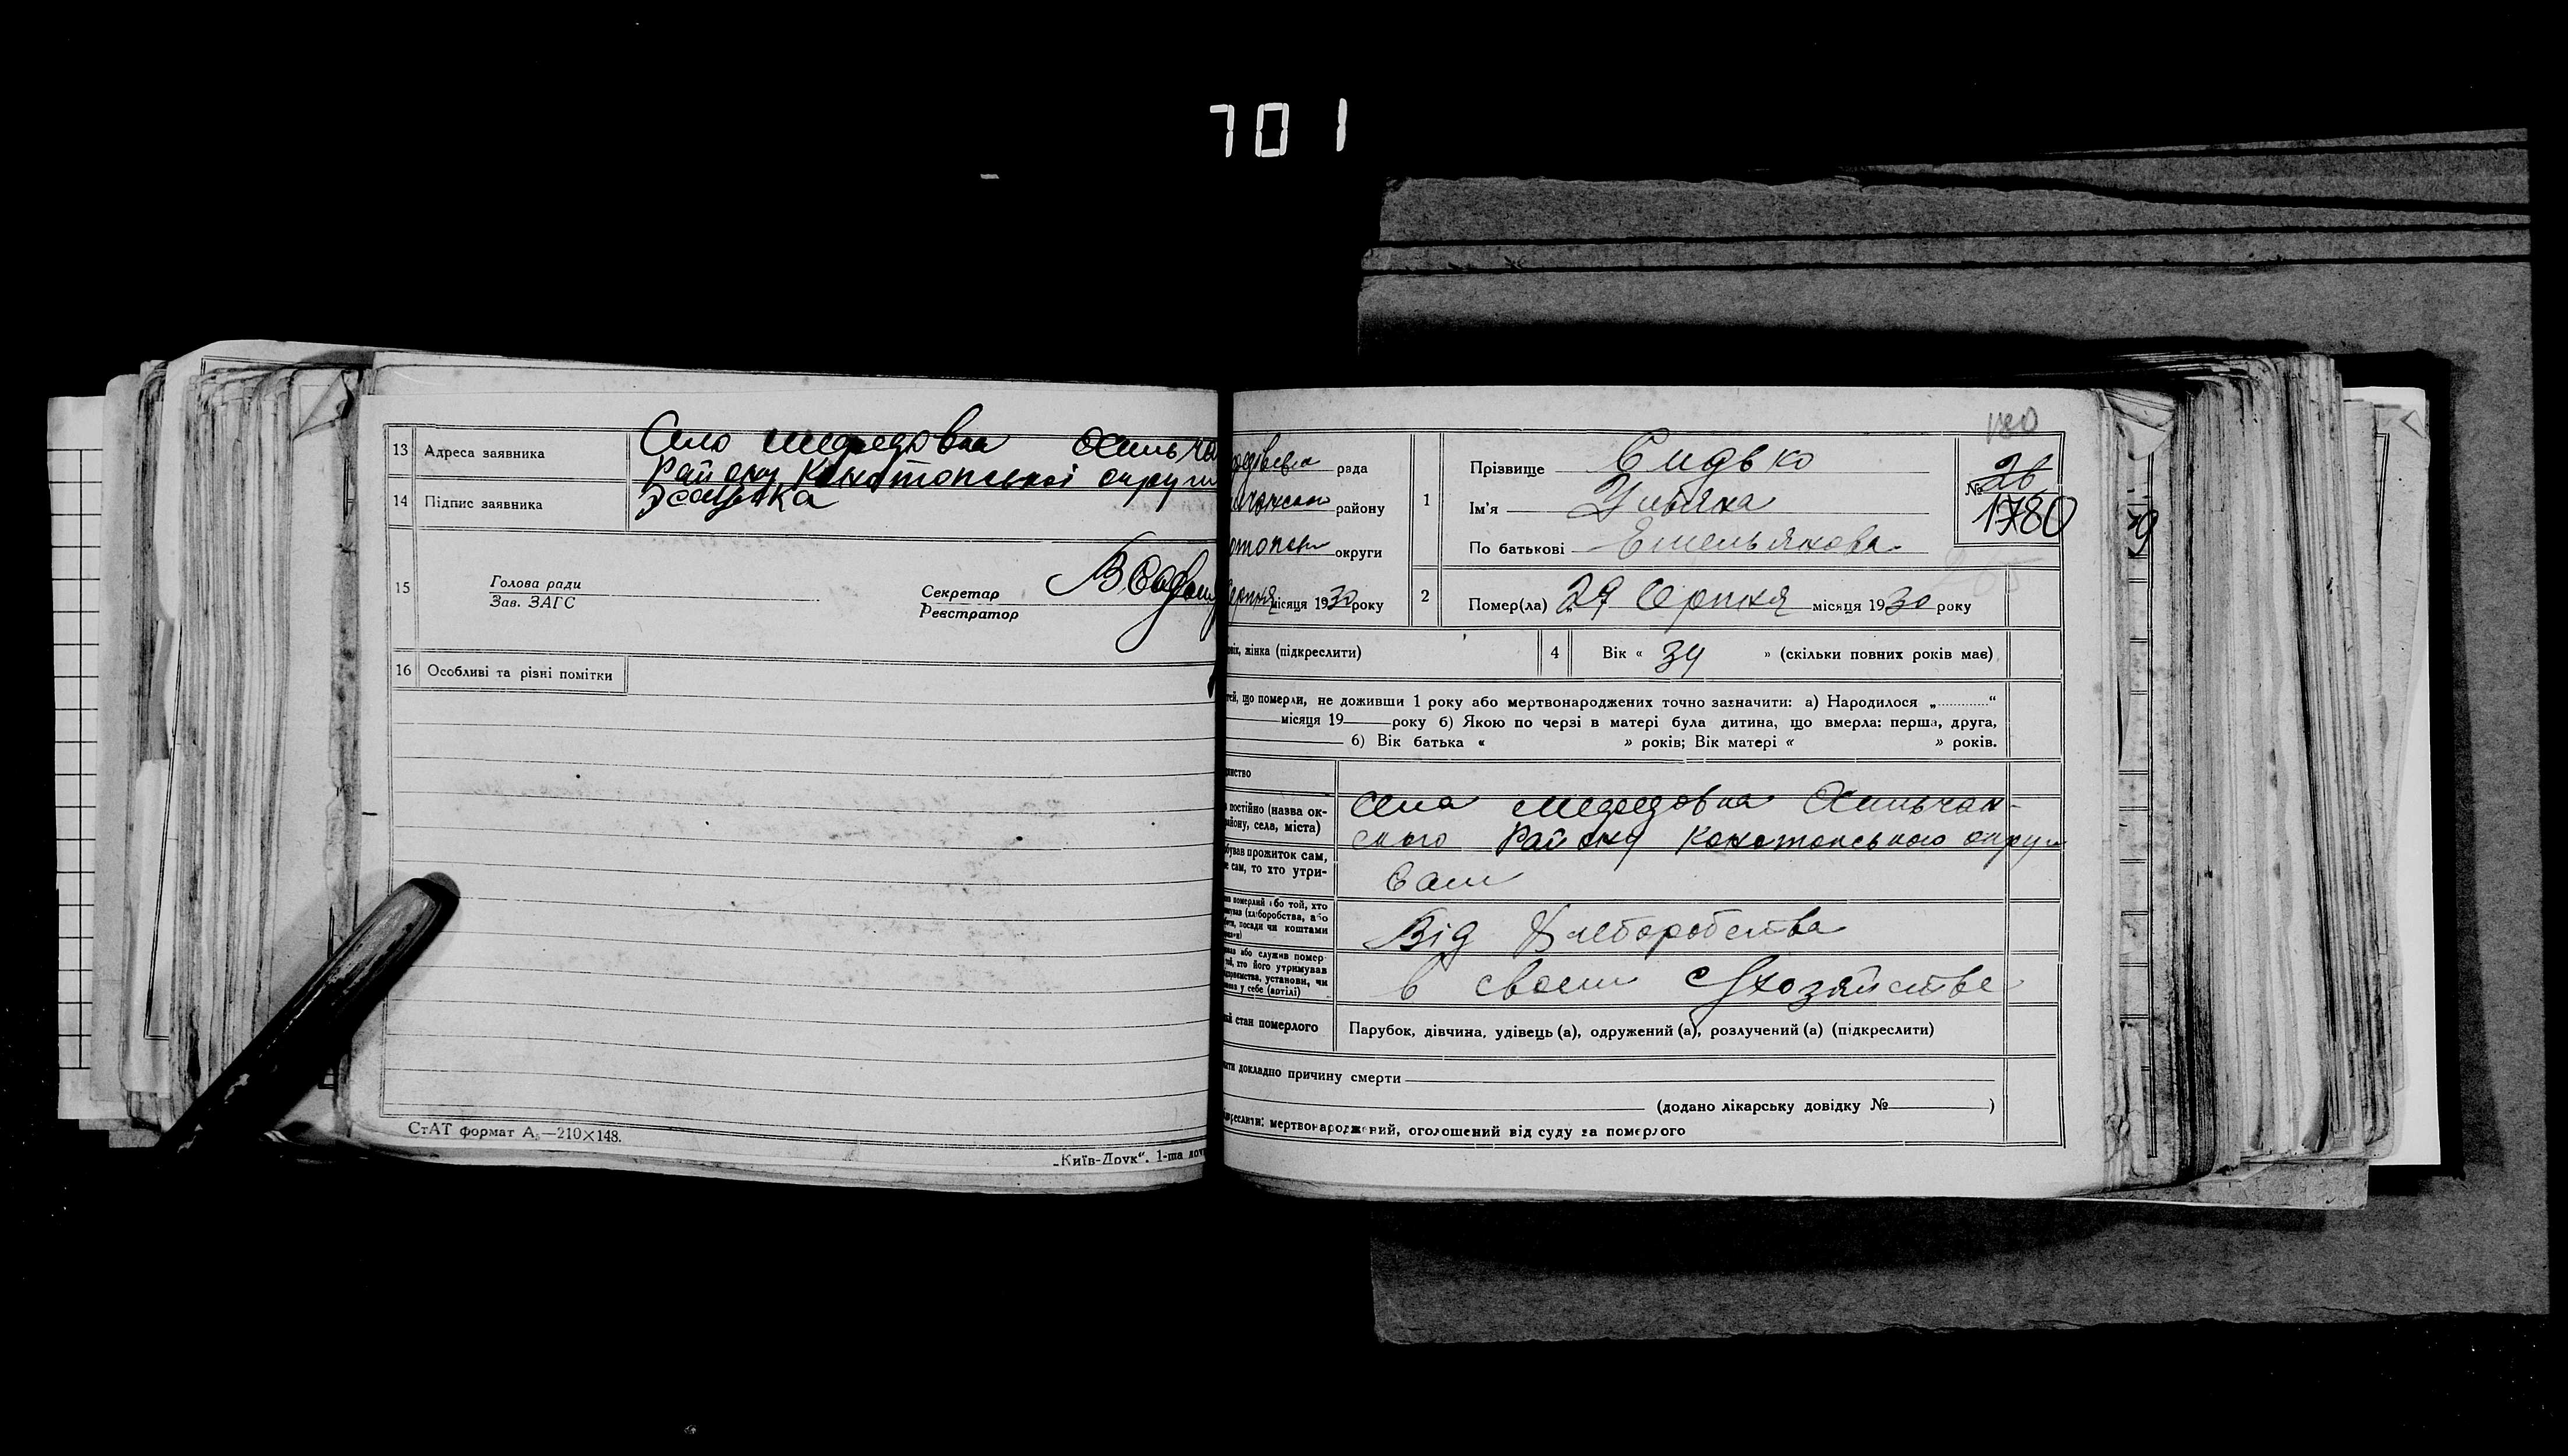 701
13 Адреса заявника Село
Району Конотопської округи
14 Підпис заявника
15 Голова ради
Зав. ЗАГС
Секретар
Реєстратор
16 Особливі та різні помітки
СтАТ формат А —210×148.
„Київ-Друк“. 1-ша
180
рада
району
округи
місяця 1930 року
1 Прізвище Сидько
Ім'я Уляна
По батькові Емельянова
№ 26
1780
2 Помер(ла) 29 Серпня місяця 1930 року
жінка (підкреслити)
4 Вік « 34 » (скільки повних років має)
що померли, не доживши 1 року або мертвонароджених точно зазначити: а) Народилося „ “
місяця 19 року б) Якою по черзі в матері була дитина, що вмерла: перша, друга,
б) Вік батька « » років; Вік матері « » років.
постійно (назва ок-
села, міста)
Села
ського Району Конотопського округи
прожиток сам,
сам, то хто утри-
Сам
померлий або той, хто
(хліборобства, або
посади чи коштами
Від Хлеборобства
або служив помер-
хто його утримував
установи, чи
у себе (артілі)
в своем Хозяйстве
стан померлого Парубок, дівчина, удівець (а), одружений (а), розлучений (а) (підкреслити)
докладно причину смерти
(додано лікарську довідку № )
мертвонароджений, оголошений від суду за померлого